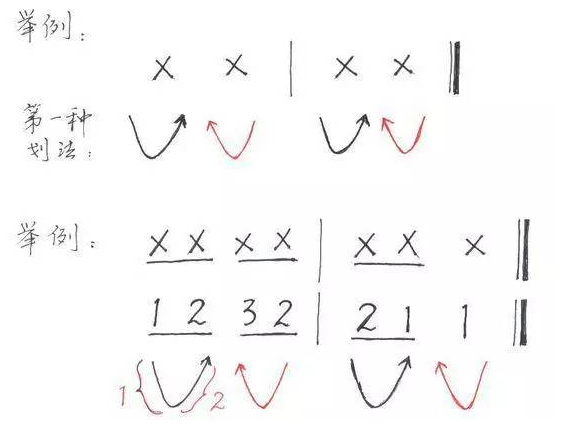 举例：
X X | X X ‖
第一种
划法：
举例：
X X X X | X X X ‖
1 2 3 2 | 2 1 1 ‖
1 2